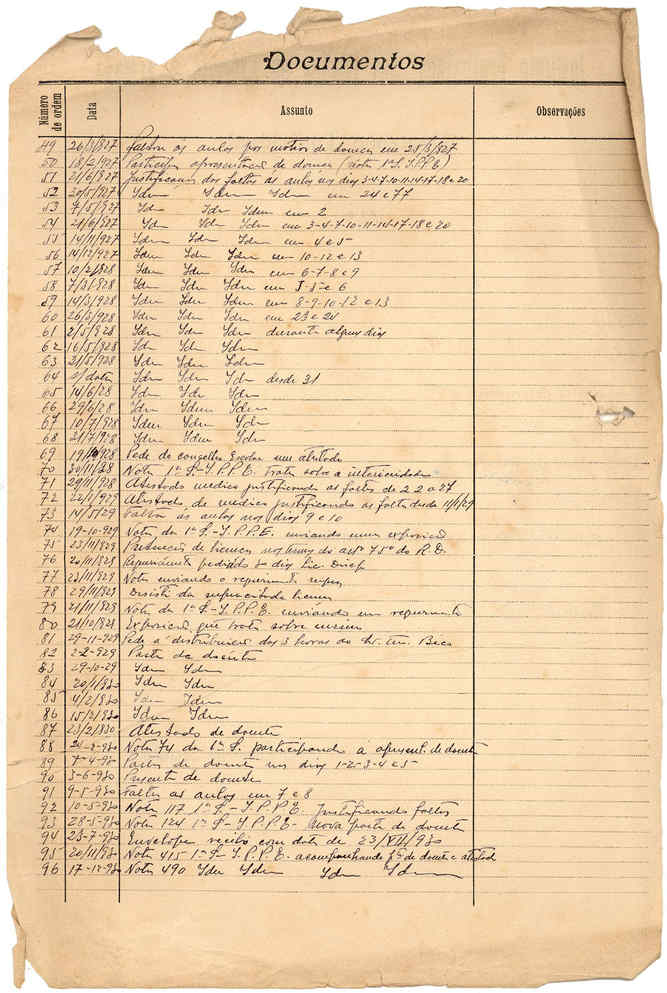 Documentos
Número de ordem Data Assunto Observações
49 26/3/927 Faltou ás aulas por motivo de doença em 25/3/927
50 18/2/927 Participa apresentação de doença (Nota 1ª S. I.P.P.E)
51 21/6/927 Justificação das faltas ás aulas nos dias 3-4-7-10-11-14-17-18 e 20
52 20/5/927 Idem Idem Idem em
53 7/5/927 Idem Idem Idem em 2
54 21/6/927 Idem Idem Idem em 3-4-7-10-11-14-17-18 e 20
55 14/11/927 Idem Idem Idem em 4 e 5
56 14/12/927 Idem Idem Idem em 10-12 e 13
57 10/2/928 Idem Idem Idem em 6-7-8 e 9
58 7/3/928 Idem Idem Idem em e 6
59 14/3/928 Idem Idem Idem em 8-9-10-12 e 13
60 26/3/928 Idem Idem Idem em 23 e 24
61 2/5/928 Idem Idem Idem durante alguns dias
62 16/5/928 Idem Idem Idem
63 21/5/928 Idem Idem Idem
64 s/data Idem Idem Idem desde 31
65 14/6/28 Idem Idem Idem
66 29/6/28 Idem Idem Idem
67 10/7/928 Idem Idem Idem
68 21/7/928 Idem Idem Idem
69 Pede do conselho Escolar um atestado
70 30/11/28 Nota 1ª S.-I.P.P.E. Trata sobre a
71 29/11/928 Atestado medico justificando as faltas de 22 a 27
72 22/1/929 Atestado de medico justificando as faltas desde 11/1/29
73 14/5/29 Faltou ás aulas nos dias 9 e 10
74 19-10-929 Nota da 1ª S.-I.P.P.E. enviando uma exposição
75 23/11/929 de licença nos termos do artº 75º do R.D.
76 20/11/929 Requerimento pedindo dias Lic.
77 23/11/929 Nota enviando o requerimento
78 29/11/929 Desisti da licença
79 21/11/929 Nota da 1ª S.-I.P.P.E. enviando um requerimento
80 21/10/928 Exposição que trata sobre ensino
81 29-11-929 Pede a distribuição das 3 horas
82 2-2-929 Parte de doente
83 29-10-29 Idem Idem
84 20/1/930 Idem Idem
85 4/2/930 Idem Idem
86 15/2/930 Idem Idem
87 23/2/930 Atestado de doente
88 Nota 74 da 1ª S. participando a apresent. de doente
89 7-4-930 Partes de doente nos dias 1-2-3-4 e 5
90 3-6-930 de doente
91 9-5-930 Faltas ás aulas em 7 e 8
92 10-5-930 Nota 117 1ª S.-I.P.P.E. justificando faltas
93 28-5-930 Nota 124 1ª S.-I.P.P.E. nova parte de doente
94 23-7-930 Envelope recibo com data de 23/VII/930
95 20/11/930 Nota 415 1ª S.-I.P.P.E. acompanhando de doente e atestado
96 17-12-930 Nota 490 Idem Idem Idem Idem